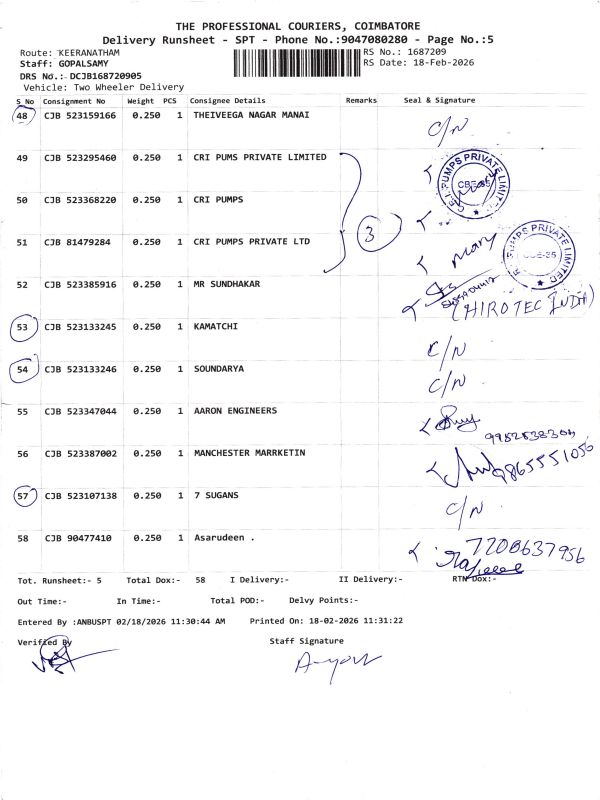 THE PROFESSIONAL COURIERS, COIMBATORE
Delivery Runsheet - SPT - Phone No.:9047080280 - Page No.:5
Route: KEERANATHAM RS No.: 1687209
Staff: GOPALSAMY RS Date: 18-Feb-2026
DRS No.:- DCJB168720905
Vehicle: Two Wheeler Delivery
S No Consignment No Weight PCS Consignee Details Remarks Seal & Signature
48 CJB 523159166 0.250 1 THEIVEEGA NAGAR MANAI C/N
49 CJB 523295460 0.250 1 CRI PUMS PRIVATE LIMITED
PUMPS PRIVATE LIMITED CBE-35
50 CJB 523368220 0.250 1 CRI PUMPS
3
51 CJB 81479284 0.250 1 CRI PUMPS PRIVATE LTD Mary
PUMPS PRIVATE LIMITED CBE-35
52 CJB 523385916 0.250 1 MR SUNDHAKAR
(HIROTEC INDIA)
53 CJB 523133245 0.250 1 KAMATCHI C/N
54 CJB 523133246 0.250 1 SOUNDARYA C/N
55 CJB 523347044 0.250 1 AARON ENGINEERS
56 CJB 523387002 0.250 1 MANCHESTER MARRKETIN 9865551056
57 CJB 523107138 0.250 1 7 SUGANS C/N
58 CJB 90477410 0.250 1 Asarudeen . 7208637956
Tot. Runsheet:- 5 Total Dox:- 58 I Delivery:- II Delivery:- RTN Dox:-
Out Time:- In Time:- Total POD:- Delvy Points:-
Entered By :ANBUSPT 02/18/2026 11:30:44 AM Printed On: 18-02-2026 11:31:22
Verified By Staff Signature